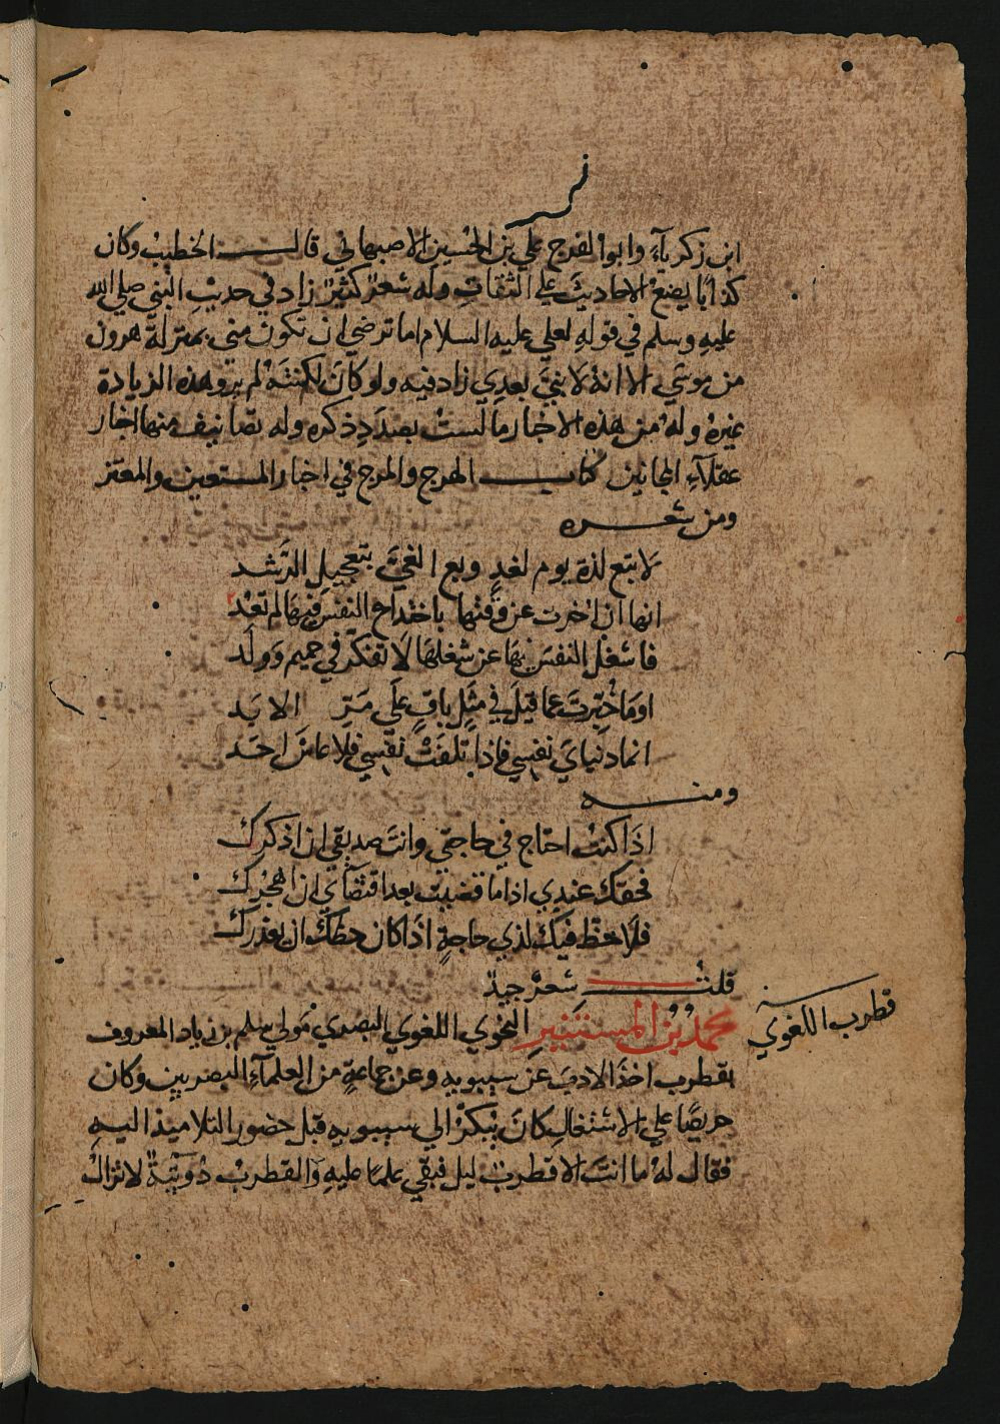 ابن زكرياء وابوا لفرج علي بن الحسين الاصبهاني قالـــت الخطيب وكان
كذابا يضع الاحاديث على الثقات وله شعر كثير زاد في حديث النبي صلى الله
عليه وسلم في قوله لعلي عليه السلام اما ترضى ان تكون منى بمنزلة هرون
من موسى الا انه لا نبي بعدي زاد فيه ولو كان لكنته لم يرو هذه الزيادة
غيره وله من هذه الاخبار ما لست بصدد ذكره وله تصانيف منها اخبار
عقلاء المجانين كتاب الهرج والمرج في اخبار المستعين والمعتز
ومن شعره
لا تبع لذة يوم لغد وبع الغي بتعجيل الرشد
انها ان اخرت عن وقتها باختداع النفس فيها لم تعد
فاشغل النفس بها عن شغلها لا تفكر في حميم وولد
او ما خبرت عما قيل في مثل باق على مر الابد
انما دنياي نفسي فاذا تلفت نفسي فلا عاش احد
ومنه
اذا كنت احتاج في حاجتي وانت صديقي ان اذكرك
فحقك عندي اذا ما قضيت بعد اقتضاي ان اهجرك
فلا حظ فيك لذي حاجة اذا كان حظك ان يعذرك
قلت شعر جيد
محمد بن المستنير النحوي اللغوي البصري مولى سلم بن زياد المعروف
بقطرب اخذ الادب عن سيبويه وعن جماعة من العلماء البصريين وكان
حريصا على الاشتغال كان يبكر الى سيبويه قبل حضور التلاميذ اليه
فقال له ما انت الا قطرب ليل فبقي علما عليه والقطرب دويبة لا تزال
قطرب اللغوي